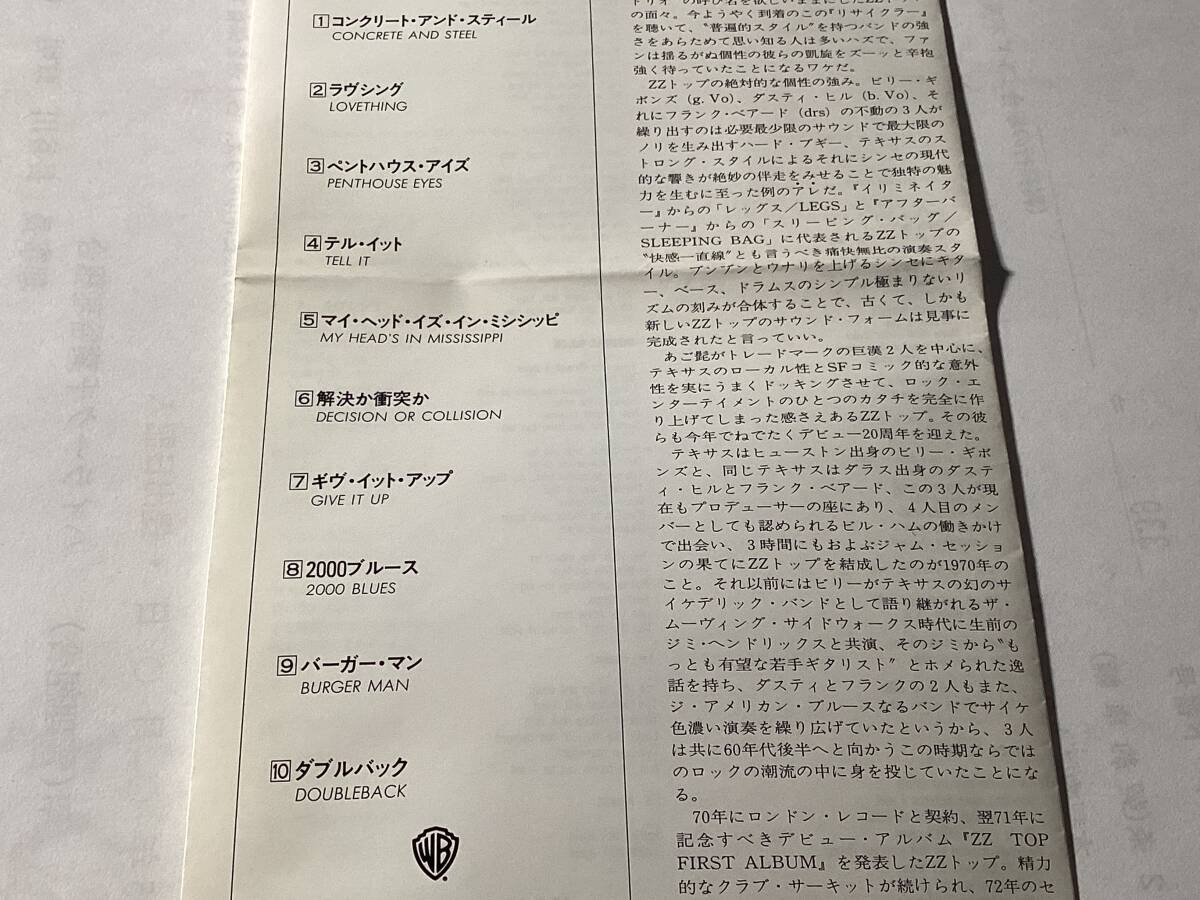 1 コンクリート・アンド・スティール
CONCRETE AND STEEL
2 ラヴシング
LOVETHING
3 ペントハウス・アイズ
PENTHOUSE EYES
4 テル・イット
TELL IT
5 マイ・ヘッド・イズ・イン・ミシシッピ
MY HEAD'S IN MISSISSIPPI
6 解決か衝突か
DECISION OR COLLISION
7 ギヴ・イット・アップ
GIVE IT UP
8 2000ブルース
2000 BLUES
9 バーガー・マン
BURGER MAN
10 ダブルバック
DOUBLEBACK
WB
の面々。今ようやく到着のこの『リサイクラー』
を聴いて、“普遍的スタイル”を持つバンドの強
さをあらためて思い知る人は多いハズで、ファ
ンは揺るがぬ個性の彼らの凱旋をズーッと辛抱
強く待っていたことになるワケだ。
ZZトップの絶対的な個性の強み。ビリー・ギ
ボンズ（g. Vo）、ダスティ・ヒル（b. Vo）、そ
れにフランク・ベアード（drs）の不動の3人が
繰り出すのは必要最少限のサウンドで最大限の
ノリを生み出すハード・ブギー、テキサスのス
トロング・スタイルによるそれにシンセの現代
的な響きが絶妙の伴走をみせることで独特の魅
力を生むに至った例のアレだ。『イリミネイタ
ー』からの「レッグス／LEGS」と『アフターバ
ーナー』からの「スリーピング・バッグ／
SLEEPING BAG」に代表されるZZトップの
“快感一直線”とも言うべき痛快無比の演奏スタ
イル。ブンブンとウナリを上げるシンセにギタ
ー、ベース、ドラムスのシンプル極まりないリ
ズムの刻みが合体することで、古くて、しかも
新しいZZトップのサウンド・フォームは見事に
完成されたと言っていい。
あご髭がトレードマークの巨漢2人を中心に、
テキサスのローカル性とSFコミック的な意外
性を実にうまくドッキングさせて、ロック・エ
ンターテイメントのひとつのカタチを完全に作
り上げてしまった感さえあるZZトップ。その彼
らも今年でねでたくデビュー20周年を迎えた。
テキサスはヒューストン出身のビリー・ギボ
ンズと、同じテキサスはダラス出身のダステ
ィ・ヒルとフランク・ベアード、この3人が現
在もプロデューサーの座にあり、4人目のメン
バーとしても認められるビル・ハムの働きかけ
で出会い、3時間にもおよぶジャム・セッショ
ンの果てにZZトップを結成したのが1970年の
こと。それ以前にはビリーがテキサスの幻のサ
イケデリック・バンドとして語り継がれるザ・
ムーヴィング・サイドウォークス時代に生前の
ジミ・ヘンドリックスと共演、そのジミから“も
っとも有望な若手ギタリスト”とホメられた逸
話を持ち、ダスティとフランクの2人もまた、
ジ・アメリカン・ブルースなるバンドでサイケ
色濃い演奏を繰り広げていたというから、3人
は共に60年代後半へと向かうこの時期ならでは
のロックの潮流の中に身を投じていたことにな
る。
70年にロンドン・レコードと契約、翌71年に
記念すべきデビュー・アルバム『ZZ TOP
FIRST ALBUM』を発表したZZトップ。精力
的なクラブ・サーキットが続けられ、72年のセ